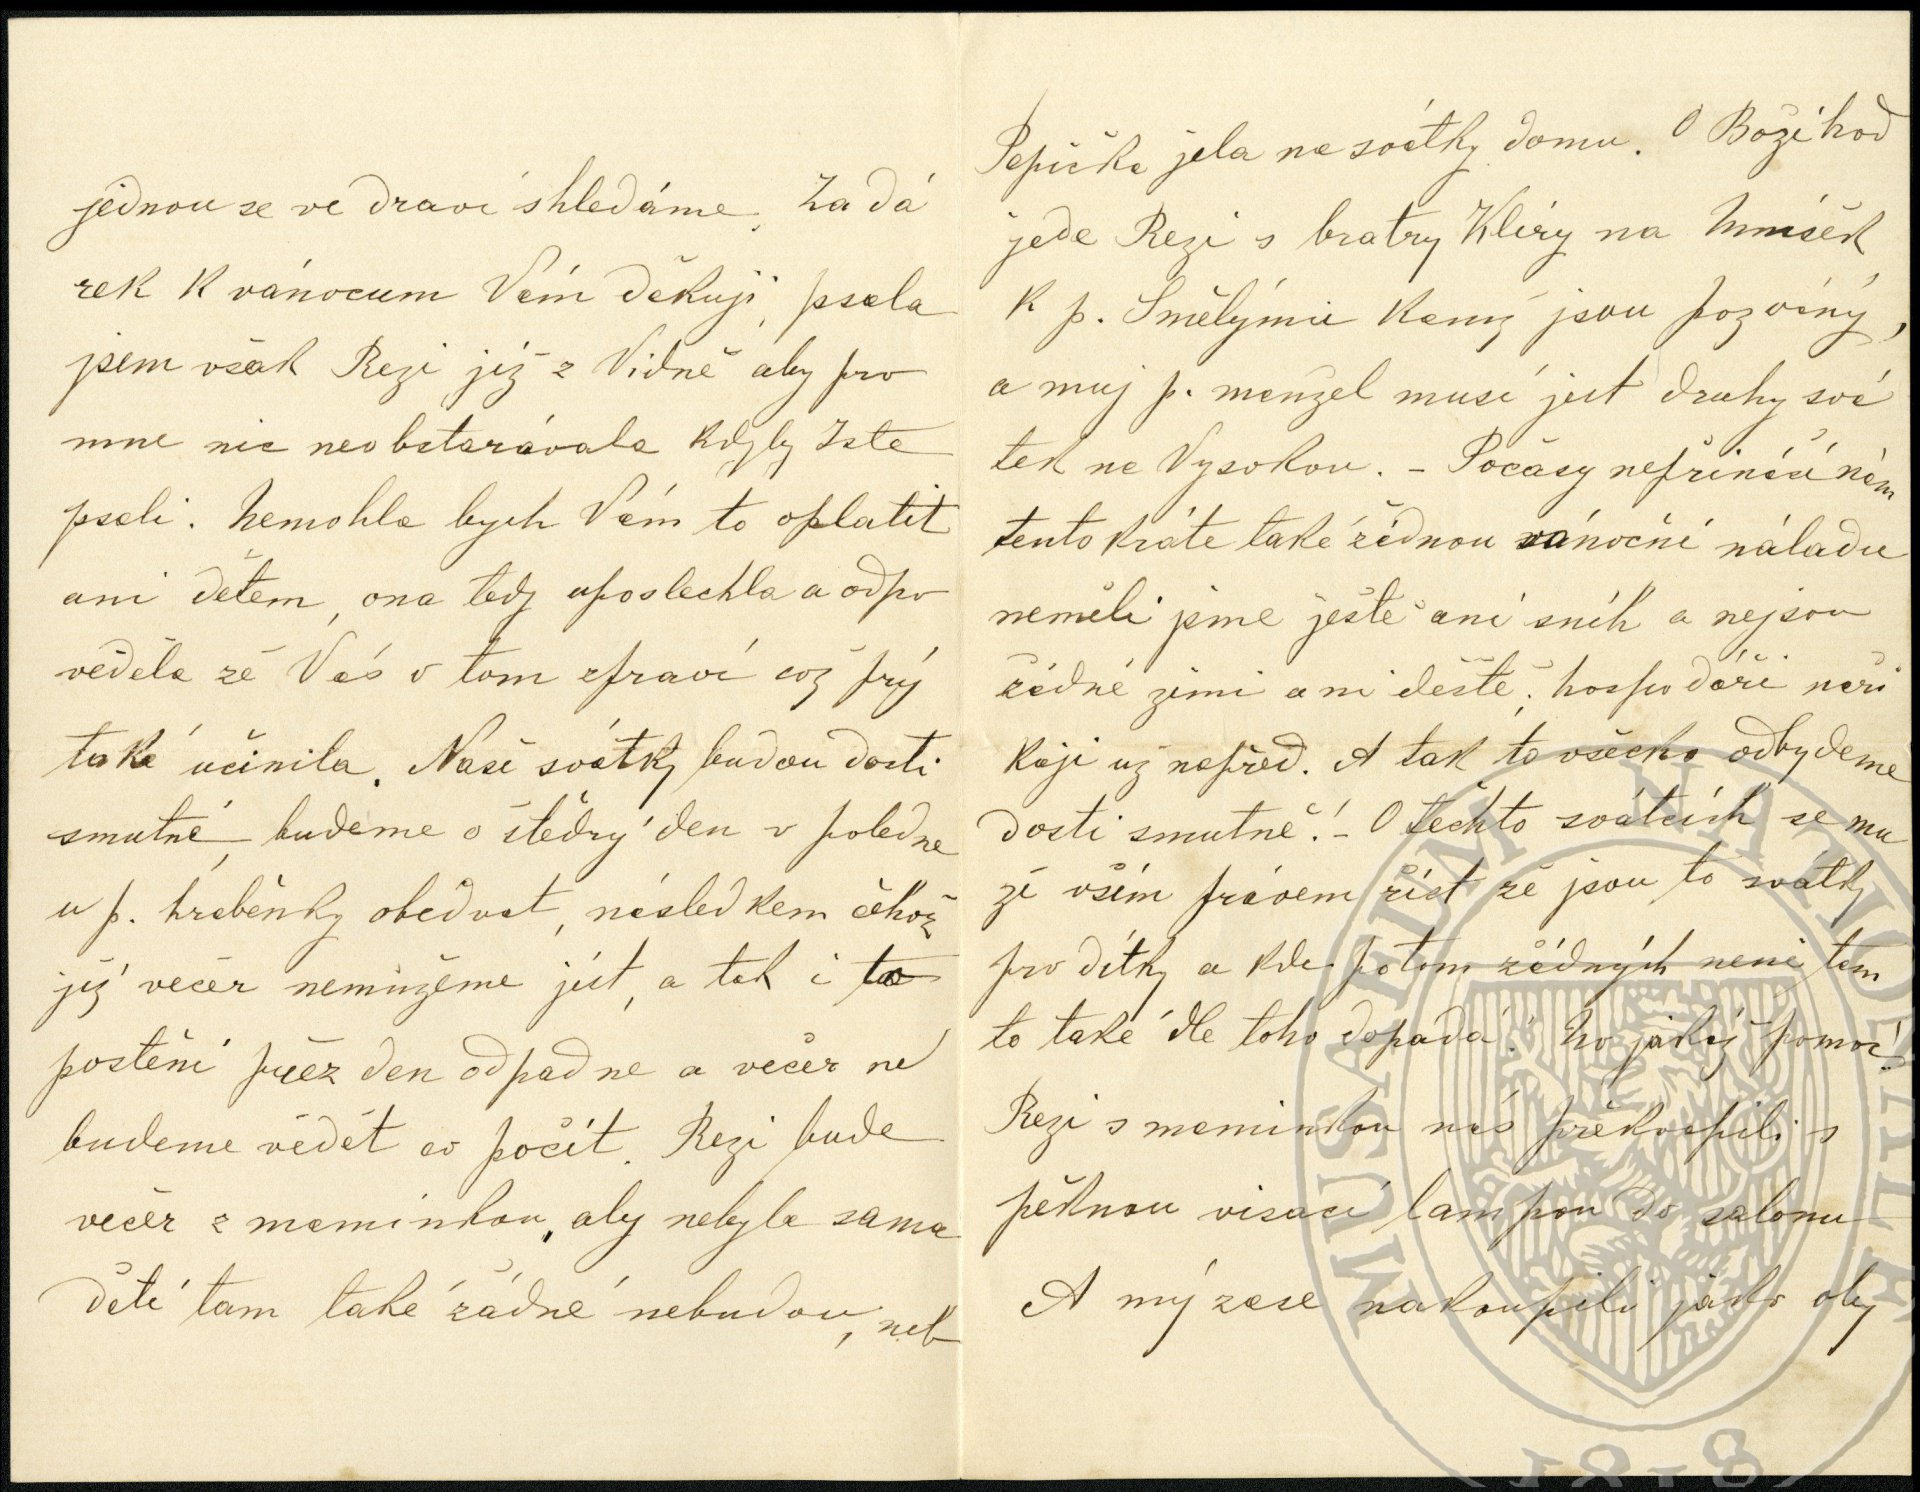 jednou se ve dravi shledáme. Za dá
rek k vánocum Vám děkuji, psala
jsem však Rezi již z Vídně aby pro
mne nic neobstarávala kdyby Jste
psali. Nemohla bych Vám to oplatit
ani dětem, ona tedy uposlechla a odpo
věděla že Vás o tom zpraví což prý
také učinila. Naše svátky budou dosti
smutné, budeme o štědrý den v poledne
u p. hraběnky obědvat, následkem čehož
již večer nemůžeme jíst, a tak i to
postění přez den odpadne a večer ne
budeme vědět co počít. Rezi bude
večer z maminkou, aby nebyla sama
děti tam také žádné nebudou, neb
Pepička jela na svátky domu. O Boží hod
jede Rezi s bratry Klíry na Mníšek
k p. Smělýmu kamž jsou pozváný,
a muj p. manžel musí jet druhy svá
tek na Vysokou. - Počasy nepřináší nám
tento kráte také žádnou vánoční náladu
neměli jsme ještě ani sníh a nejsou
žádné zimi ani deště, hospodáři naři
kaji už napřed. A tak to všecko odbydeme
dosti smutně! - O těchto svátcích se mu
že vším právem říct že jsou to svátky
pro dítky a kde potom žádných není tam
to také dle toho dopadá! No jakáž pomoc!
Rezi s maminkou nás překvapili s
pěknou visací lampou do salonu
A mý zase nakoupili jako aby
MUSAEUM NATIONALE
1818